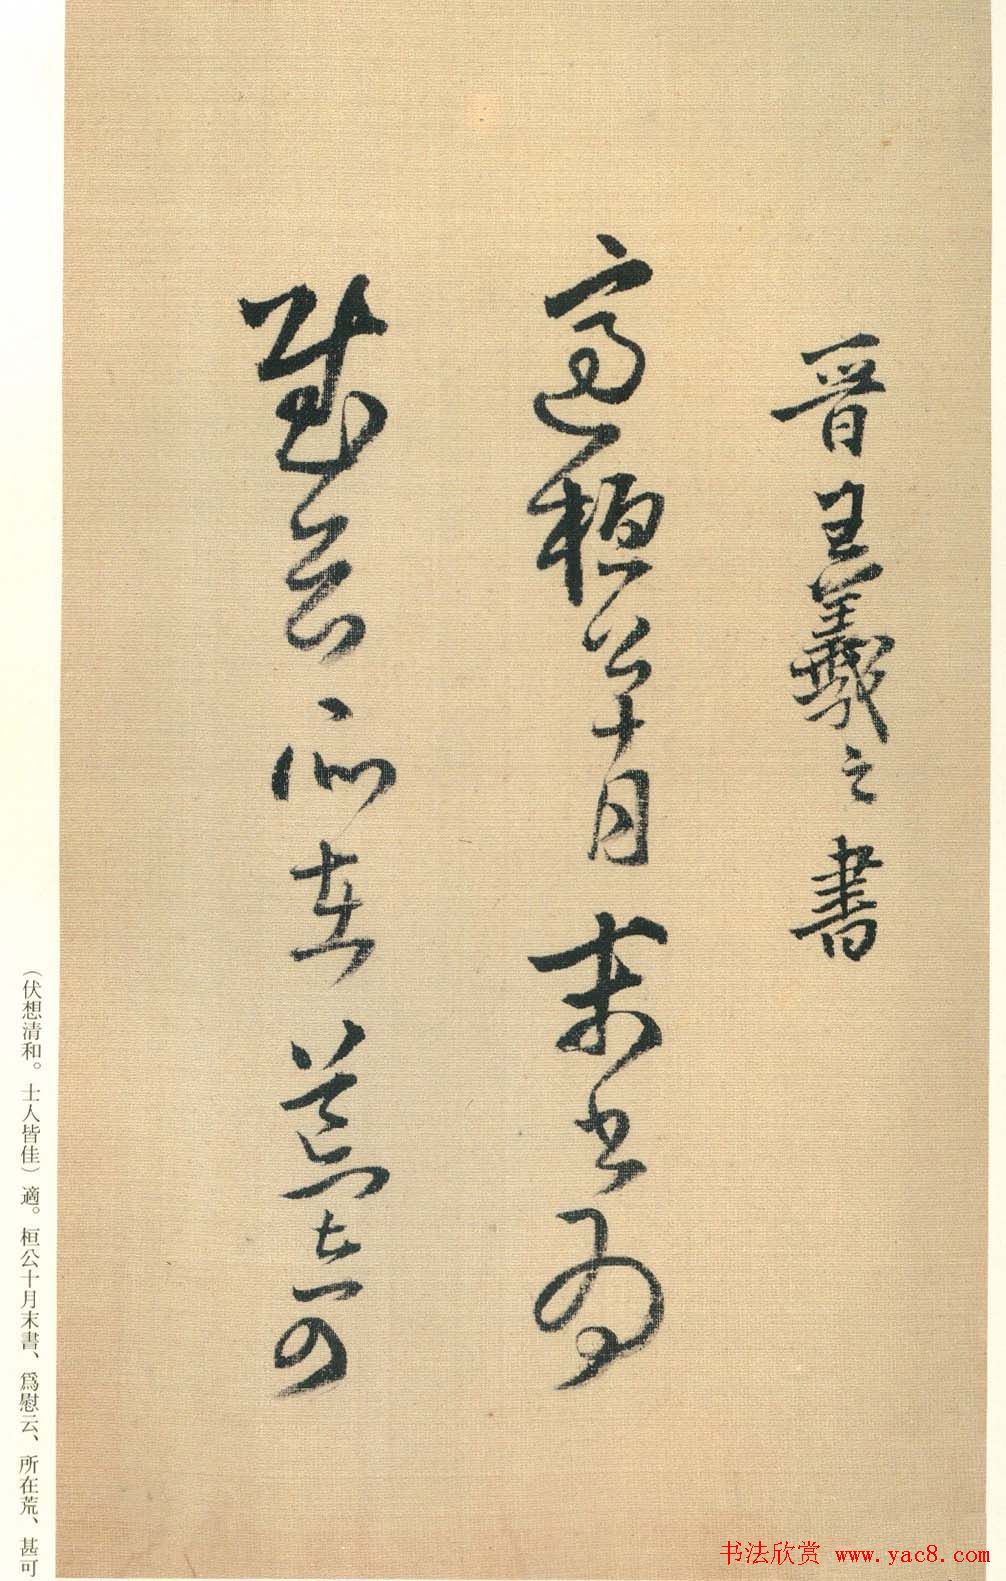 晋王羲之書
適桓公十月末書為
慰云所在荒甚可
(伏想清和。士人皆佳)適。桓公十月末書、爲慰云、所在荒、甚可
书法欣赏 www.yac8.com